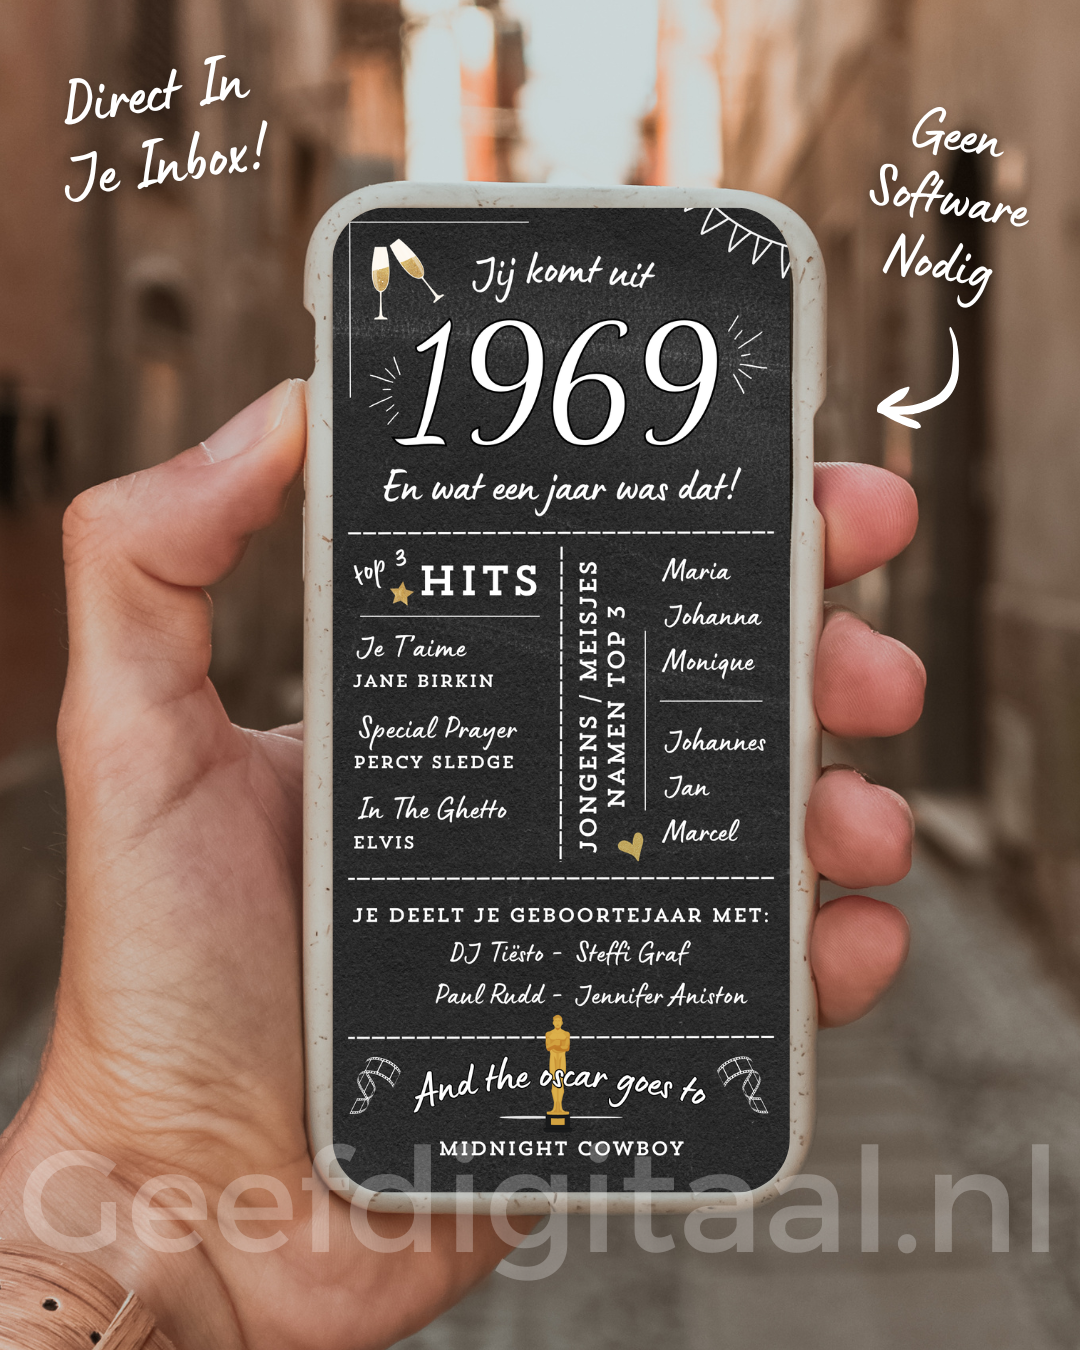 Direct In
Je Inbox!
Geen
Software
Nodig
Jij komt uit
1969
En wat een jaar was dat!
top 3
HITS
Je T'aime
JANE BIRKIN
Special Prayer
PERCY SLEDGE
In The Ghetto
ELVIS
JONGENS / MEISJES
NAMEN TOP 3
Maria
Johanna
Monique
Johannes
Jan
Marcel
JE DEELT JE GEBOORTEJAAR MET:
DJ Tiësto - Steffi Graf
Paul Rudd - Jennifer Aniston
And the oscar goes to
MIDNIGHT COWBOY
Geefdigitaal.nl